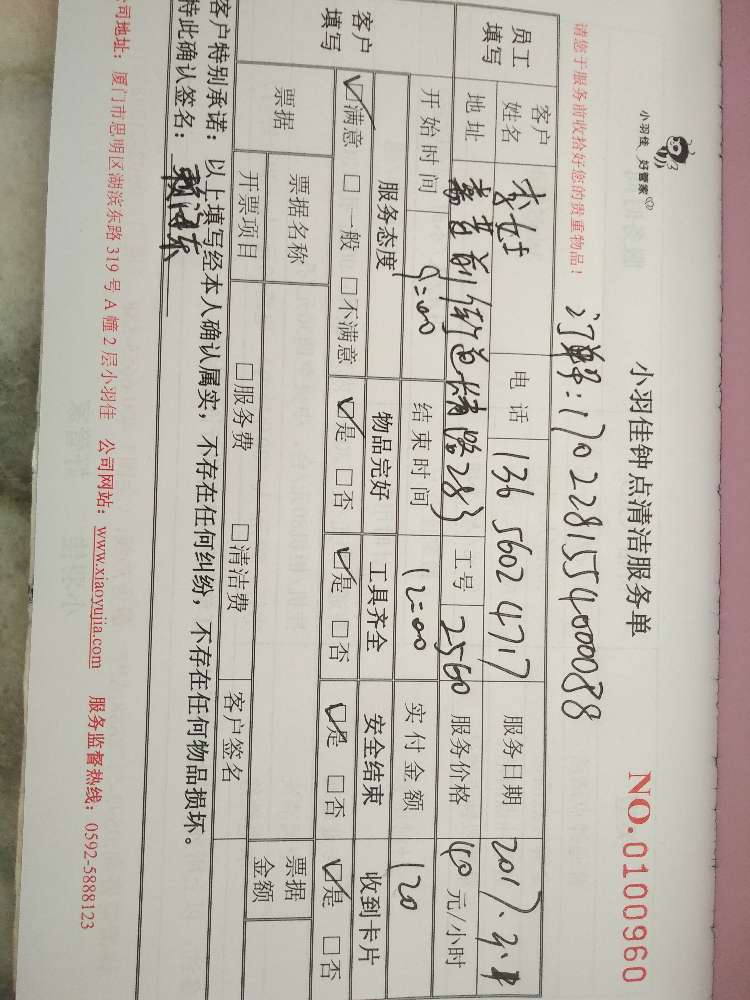 小羽佳 好管家
小羽佳钟点清洁服务单
NO.0100960
请您于服务前收拾好您的贵重物品!
订单号:170228155400088
员工填写
客户姓名 李女士 电话 136 5602 4717 服务日期 2017.
地址 嘉莲前街道 路283 工号 2560 服务价格 40 元/小时
开始时间 9:00 结束时间 12:00 实付金额 120
客户填写
服务态度 物品完好 工具齐全 安全结束 收到卡片
☑满意 □一般 □不满意 ☑是 □否 ☑是 □否 ☑是 □否 ☑是 □否
票据 票据名称 票据金额
开票项目 □服务费 □清洁费 客户签名
客户特别承诺:以上填写经本人确认属实,不存在任何纠纷,不存在任何物品损坏。
特此确认签名:
公司地址:厦门市思明区湖滨东路 319 号 A 幢 2 层小羽佳 公司网站:www.xiaoyujia.com 服务监督热线:0592-5888123